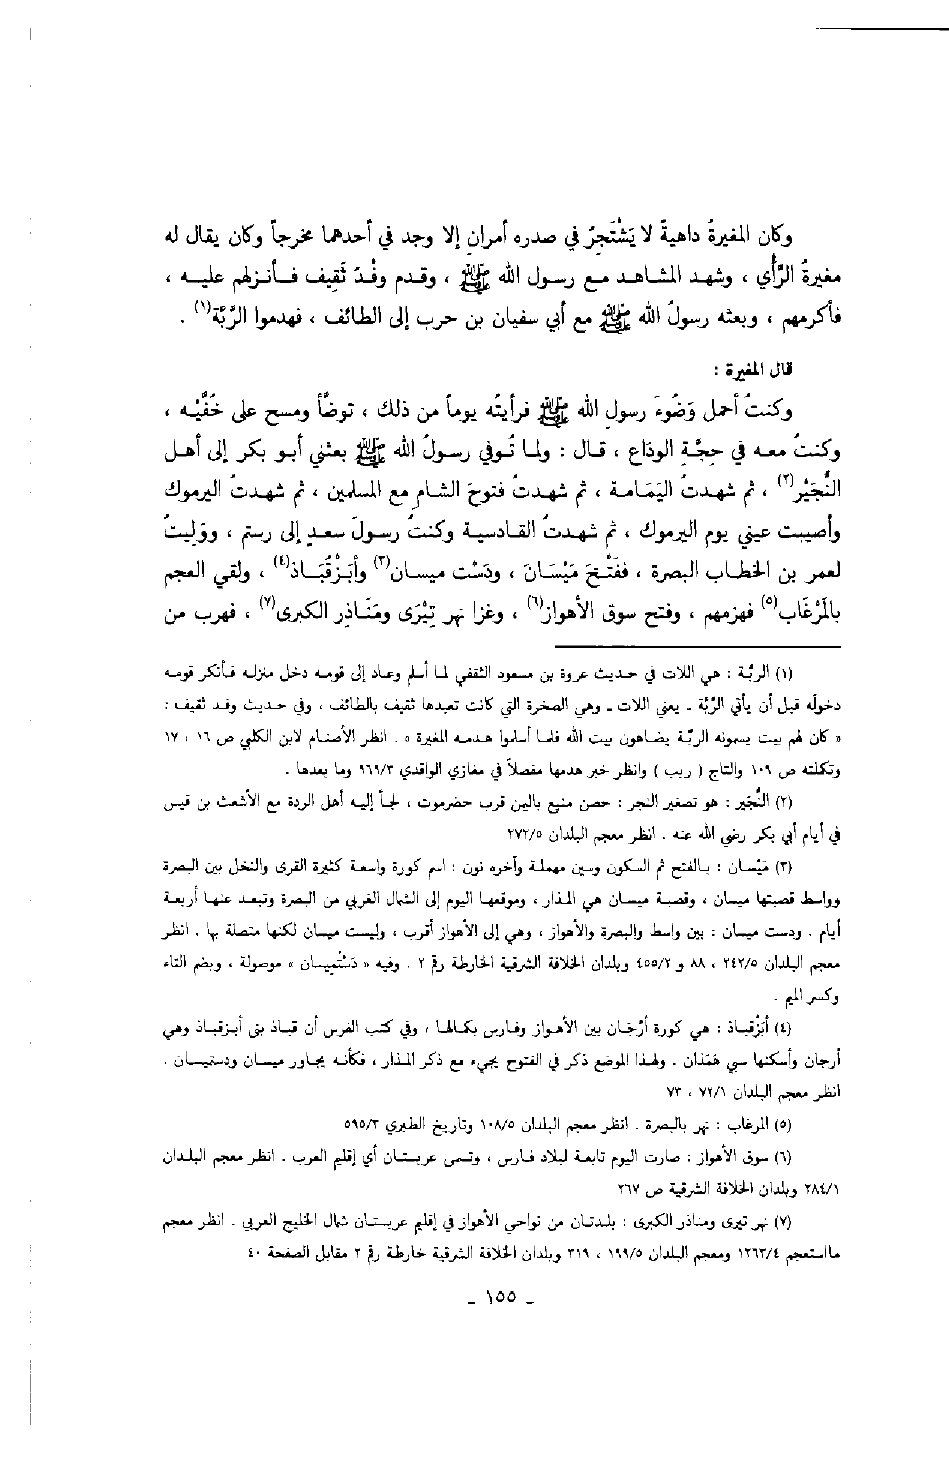 وكان المغيرةُ داهيةً لا يَشْتَجِرُ في صدره أمران إلا وجد في أحدهما مخرجاً وكان يقال له
مغيرةُ الرَّأي ، وشهد المشاهد مع رسول الله ﷺ ، وقدم وفْدُ ثَقِيف فأنزلهم عليه ،
فأكرمهم ، وبعثه رسولُ الله ﷺ مع أبي سفيان بن حرب إلى الطائف ، فهدموا الرَّبَّة(١) .
قال المغيرة :
وكنتُ أحمل وَضُوءَ رسولِ الله ﷺ فرأيتُه يوماً من ذلك ، توضَّأ ومسح على خُفَّيْه ،
وكنتُ معه في حِجَّةِ الوداع ، قال : ولما تُوفي رسولُ الله ﷺ بعثني أبو بكر إلى أهل
النُّجَيْر(٢) ، ثم شهدتُ اليَمَامة ، ثم شهدتُ فتوحَ الشام مع المسلمين ، ثم شهدتُ اليرموك
وأصيبت عيني يوم اليرموك ، ثم شهدتُ القادسية وكنتُ رسولَ سعدٍ إلى رستم ، ووَلِيتُ
لعمر بن الخطاب البصرة ، ففَتْحَ مَيْسَانَ ، ودَسْت ميسان(٣) وأبَزْقُبَاذ(٤) ، ولقي العجم
بالمَرْغَاب(٥) فهزمهم ، وفتح سوق الأهواز(٦) ، وغزا نهر تِيْرَى ومَنَاذِر الكبرى(٧) ، فهرب من
(١) الربَّة : هي اللات في حديث عروة بن مسعود الثقفي لما أسلم وعاد إلى قومه دخل منزله فأنكر قومه
دخوله قبل أن يأتي الرَّبَّة ـ يعني اللات ـ وهي الصخرة التي كانت تعبدها ثقيف بالطائف ، وفي حديث وفد ثقيف :
« كان لهم بيت يسمونه الربَّة يضاهون بيت الله فلما أسلموا هدمه المغيرة » . انظر الأصنام لابن الكلبي ص ١٦ ، ١٧
وتكلته ص ١٠٩ والتاج ( ريب ) وانظر خبر هدمها مفصلاً في مغازي الواقدي ٩٦٩/٣ وما بعدها .
(٢) النُّجَير : هو تصغير النجر : حصن منيع باليمن قرب حضرموت ، لجأ إليه أهل الردة مع الأشعث بن قيس
في أيام أبي بكر رضي الله عنه . انظر معجم البلدان ٢٧٢/٥
(٣) مَيْسان : بالفتح ثم السكون وسين مهملة وآخره نون : اسم كورة واسعة كثيرة القرى والنخل بين البصرة
وواسط قصبتها ميسان ، وقصبة ميسان هي المذار ، وموقعها اليوم إلى الشمال الغربي من البصرة وتبعد عنها أربعة
أيام . ودست ميسان : بين واسط والبصرة والأهواز ، وهي إلى الأهواز أقرب ، وليست ميسان لكنها متصلة بها . انظر
معجم البلدان ٢٤٢/٥ ، ٨٨ و ٤٥٥/٢ وبلدان الخلافة الشرقية الخارطة رقم ٢ . وفيه « دَسْتُمِيسان » موصولة ، وبضم التاء
وكسر الميم .
(٤) أَبَزْقُباذ : هي كورة أرَّجان بين الأهواز وفارس بكمالها ، وفي كتب الفرس أن قباذ بنى أبزقباذ وهي
أرجان وأسكنها سبي هَمَذان . ولهذا الموضع ذكر في الفتوح يجيء مع ذكر المذار ، فكأنه يجاور ميسان ودستميسان .
انظر معجم البلدان ٧٢/١ ، ٧٣
(٥) المرغاب : نهر بالبصرة . انظر معجم البلدان ١٠٨/٥ وتاريخ الطبري ٥٩٥/٣
(٦) سوق الأهواز : صارت اليوم تابعة لبلاد فارس ، وتسمى عربستان أي إقليم العرب . انظر معجم البلدان
٢٨٤/١ وبلدان الخلافة الشرقية ص ٢٦٧
(٧) نهر تيرى ومناذر الكبرى : بلدتان من نواحي الأهواز في إقليم عربستان شمال الخليج العربي . انظر معجم
مااستعجم ١٢٦٣/٤ ومعجم البلدان ١٩٩/٥ ، ٣١٩ وبلدان الخلافة الشرقية خارطة رقم ٢ مقابل الصفحة ٤٠
ـ ١٥٥ ـ